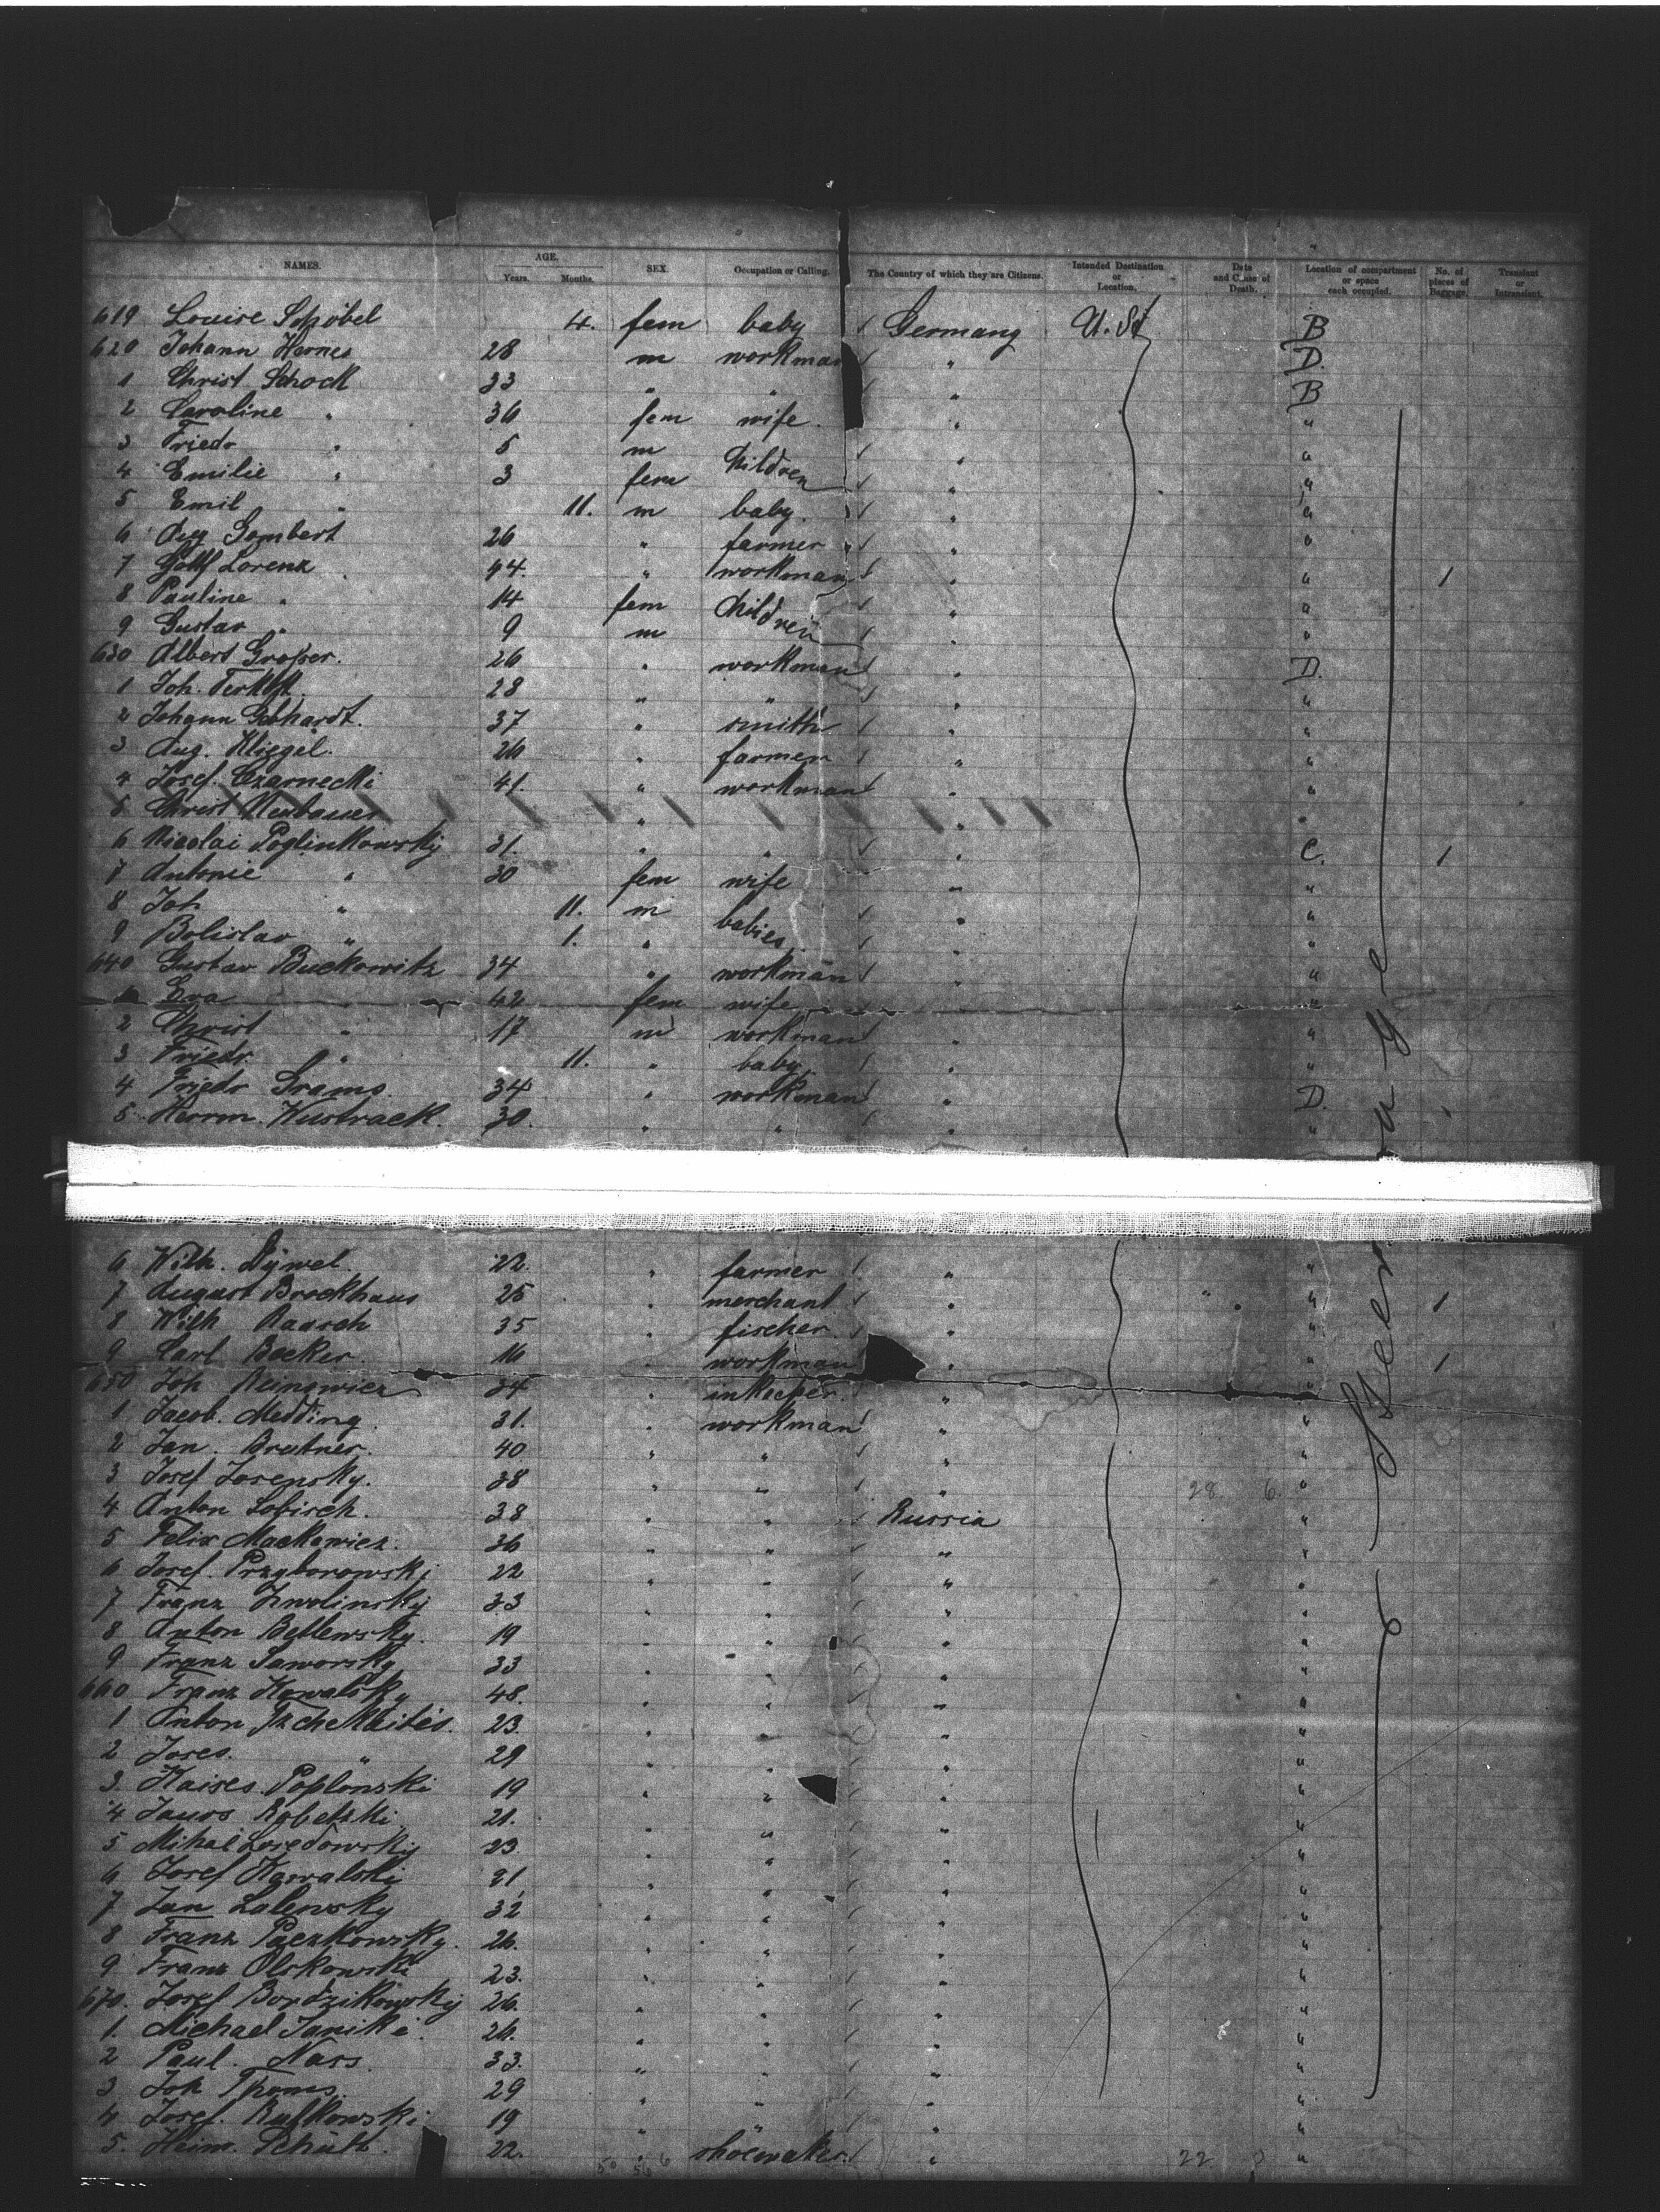 NAMES. AGE. Years. Months. SEX. Occupation or Calling. The Country of which they are Citizens. Intended Destination or Location. Date and Cause of Death. Location of compartment or space each occupied. No. of pieces of Baggage. Transient or Intransient.
619 Louise Schöbel 4. fem baby Germany U. St B
620 Johann Hornes 28 m workman " D.
1 Christ Schock 33 " " " B
2 Caroline " 36 fem wife. " "
3 Friedr " 5 m Children " "
4 Emilie " 3 fem " "
5 Emil " 11. m baby. " "
6 Aug Gombert 26 " farmer " "
7 Gottf Lorenz 44. " workman " " 1
8 Pauline " 14 fem Children " "
9 Gustav " 9 m " "
630 Albert Großer. 26 " workman " D.
1 Joh. 28 " " " "
2 Johann Gebhardt. 37 " smith " "
3 Aug. Kliegel. 26 " farmer " "
4 Josef. Czarnecki 41. " workman " "
5 Christ Neubauer " " "
6 Nicolai Poglinkowsky 31. " " " C. 1
7 Antonie " 30 fem wife " "
8 Joh " 11. m babies " "
9 Bolislav " 1. " " "
640 Gustav Buckowitz 34 " workman " "
1 Eva 42 fem wife "
2 Christ " 17 m workman " "
3 Friedr. " 11. " baby " "
4 Friedr Grams 34 " workman " D.
5 Herrm. Wustrack. 30. " " " "
6 Wilh. 22. " farmer " "
7 August Brockhaus 25 " merchant " " 1
8 Wilh Raasch 35 " fischer. " "
9 Carl Becker. 16 " workman " " 1
650 Joh 34 " inkeeper. " "
1 Jacob. Medding. 31. " workman " "
2 Jan. Brutner. 40 " " " "
3 Josef Jorensky. 38 " " " 28. 6. "
4 Anton Lobisch. 38 " " Russia "
5 Felix Mackewicz. 36 " " " "
6 Josef. Przyborowski 22 " " " "
7 Franz Zwolinsky 33 " " " "
8 Anton Bellewsky. 19 " " " "
9 Franz Jaworsky 33 " " " "
660 Franz Kowalsky 48. " " " "
1 Anton 23. " " " "
2 Joses. " 29 " " " "
3. Kaises. Poplonski 19 " " " "
4 21. " " " "
5 Mihal 23. " " " "
6 Josef Kowalski 21 " " " "
7 Jan Lalewsky 32 " " " "
8 Franz Paczkowsky. 26. " " " "
9 Franz Olskowski 23. " " " "
670. Josef Bordzikowsky 26. " " " "
1. Michael Janiki. 26. " " " "
2 Paul. Nass. 33. " " " "
3 Joh Thoms. 29 " " " "
4 Josef. Rutkowski 19 " " " "
5. Heinr. Schült. 22. " shoemaker. " 22 "
Steerage